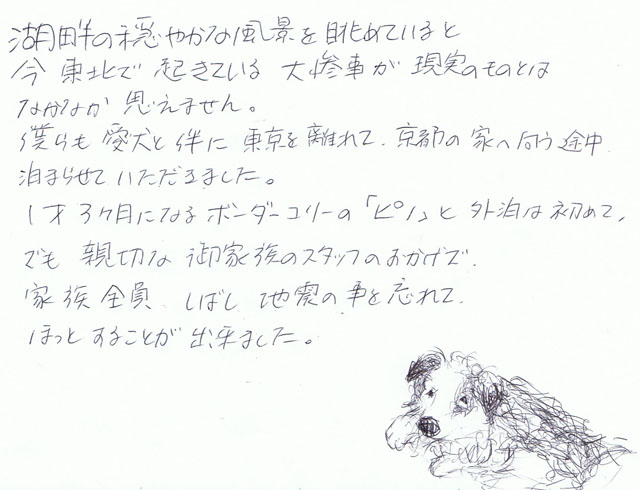 湖畔の穏やかな風景を眺めていると
今 東北で 起きている 大惨事が 現実のものとは
なかなか 思えません。
僕らも 愛犬と伴に 東京を離れて、京都の家へ向う途中
泊まらせていただきました。
1才3ヶ月になるボーダーコリーの「ピノ」と 外泊は初めて、
でも 親切な 御家族のスタッフのおかげで、
家族全員 しばし 地震の事を忘れて、
ほっとすることが 出来ました。